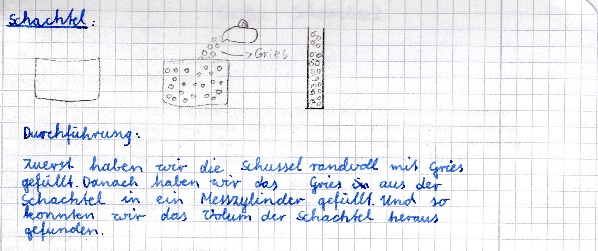 Schachtel:
Gries
Durchführung:
Zuerst haben wir die Schussel randvoll mit Gries
gefüllt. Danach haben wir das Gries in aus der
Schachtel in ein Messzylinder gefüllt. Und so
konnten wir das Volum der Schachtel heraus
gefunden.